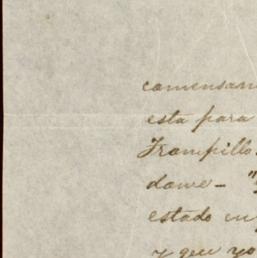 comensam
esta para
Trampillo
dame – "
estado en
y que yo